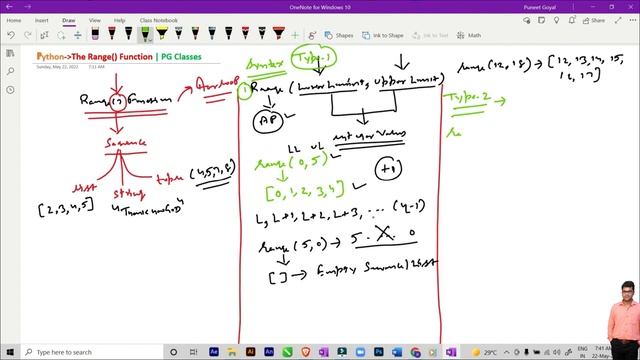 OneNote for Windows 10
Puneet Goyal
Home Insert Draw View Help Class Notebook
Shapes Ink to Shape
Python->The Range() Function | PG Classes
Sunday, May 22, 2022 7:13 AM
Range() Function
Sequence
list string tuple (4,5,7,8)
[2,3,4,5]
Syntax Type-1
① Range (Lower Limit, Upper Limit)
AP
integer values
LL UL
range (0,5)
+1
[0,1,2,3,4]
L, L+1, L+2, L+3, ... (U-1)
range (5,0) → 5 . X . 0
[] → Empty Sequence/List
range (12,18) → [12,13,14,15,
16,17]
Type-2 →
Type here to search
29°C
ENG
IN
7:41 AM